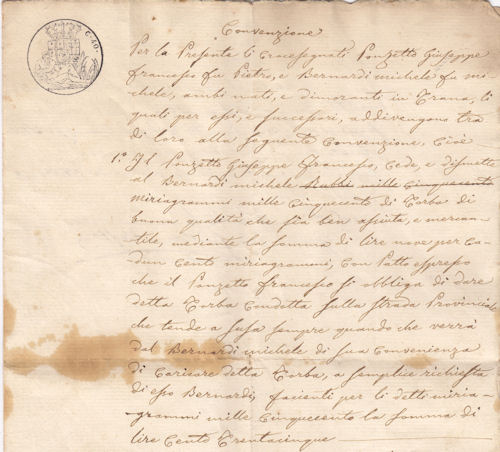 C. 40.
Convenzione
Per la Presente li Crocesegnati Ponzetto Giuseppe
Francesco fu Pietro, e Bernardi Michele fu Mi-
chele, ambi nati, e dimoranti in Trana, li
quali per essi, e successori, addivengono tra
di loro alla seguente Convenzione, Cioè
1.° Il Ponzetto Giuseppe Francesco, Cede, e dismette
al Bernardi Michele Rubbi mille Cinquecento
miriagrammi mille Cinquecento di Torba di
buona qualità che sia ben asciuta, e mercan-
tile, mediante la somma di lire nove per ca-
dun Cento miriagrammi, Con Patto espresso
che il Ponzetto Francesco si obbliga di dare
detta Torba Condotta sulla strada Provincial
che tende a Susa sempre quando che verrà
dal Bernardi Michele di sua Convenienza
di Caricare detta Torba, a semplice richiesta
di esso Bernardi, facienti per li detti miria-
grammi mille Cinquecento la somma di
lire Cento Trentacinque